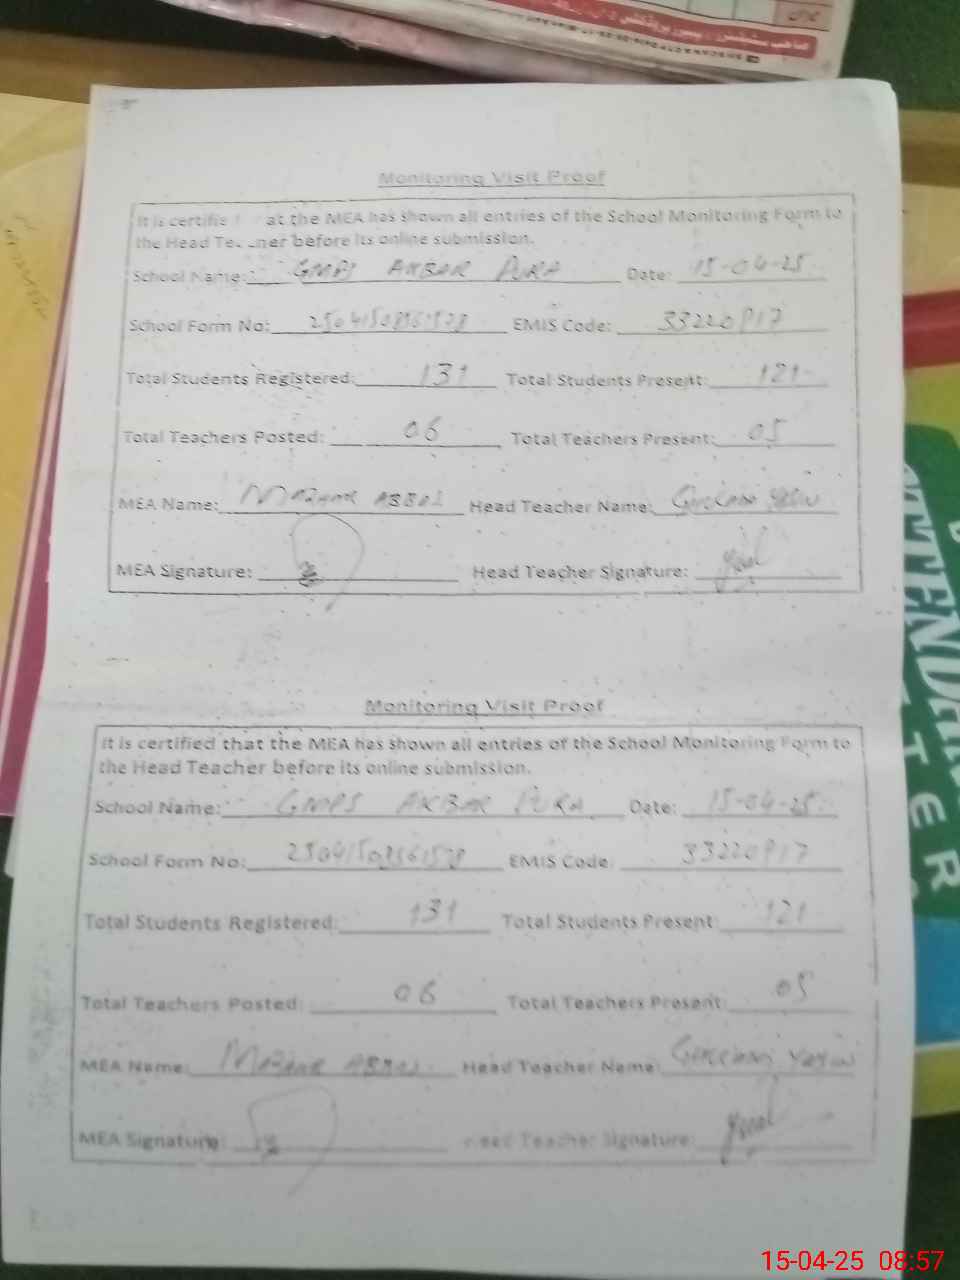 Monitoring Visit Proof
It is certifie at the MEA has shown all entries of the School Monitoring Form to
the Head Te ner before its online submission.
School Name: GMPS AKBAR PURA Date: 15-04-25
School Form No: EMIS Code: 33220917
Total Students Registered: 131 Total Students Present: 121
Total Teachers Posted: 06 Total Teachers Present: 05
MEA Name: MAZHAR ABBAS Head Teacher Name: Yasin
MEA Signature: Head Teacher Signature:
Monitoring Visit Proof
It is certified that the MEA has shown all entries of the School Monitoring Form to
the Head Teacher before its online submission.
School Name: GMPS AKBAR PURA Date: 15-04-25
School Form No: EMIS Code: 33220917
Total Students Registered: 131 Total Students Present: 121
Total Teachers Posted: 06 Total Teachers Present: 05
MEA Name: MAZHAR ABBAS Head Teacher Name: Yasin
MEA Signature: Head Teacher Signature:
15-04-25 08:57